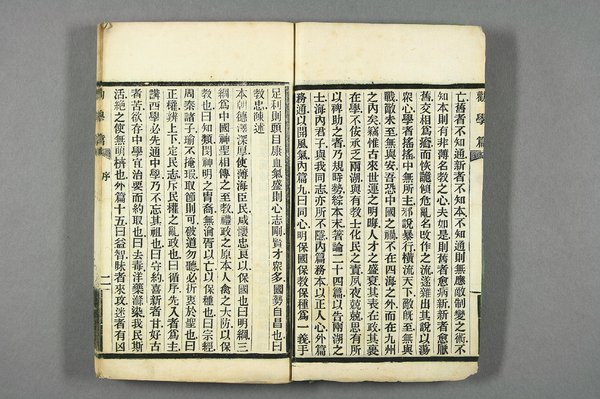 勸學篇
亡舊者不知通新者不知本不知通則無應敵制變之術不
知本則有非薄名教之心夫如是則舊者愈病新新者愈厭
舊交相爲瘉而恢詭傾危亂名改作之流遂雜出其說以蕩
衆心學者搖搖中無所主邪說暴行橫流天下敵既至無與
戰敵未至無與安吾恐中國之禍不在四海之外而在九州
之內矣竊惟古來世運之明晦人才之盛衰其表在政其裏
在學不佞承乏兩湖與有教士化民之責夙夜兢兢思有所
以裨助之者乃規時勢綜本末著論二十四篇以告兩湖之
士海內君子與我同志亦所不隱內篇務本以正人心外篇
務通以開風氣內篇九曰同心明保國保教保種爲一義手
足利則頭目康血氣盛則心志剛賢才衆多國勢自昌也曰
教忠陳述
本朝德澤深厚使薄海臣民咸懷忠良以保國也曰明綱三
綱爲中國神聖相傳之至教禮政之原本人禽之大防以保
教也曰知類閔神明之胄裔無淪胥以亡以保種也曰宗經
周秦諸子瑜不掩瑕取節則可破道勿聽必折衷於聖也曰
正權辨上下定民志斥民權之亂政也曰循序先入者爲主
講西學必先通中學乃不忘其祖也曰守約喜新者甘好古
者苦欲存中學宜治要而約取也曰去毒洋藥滌染我民斯
活絕之使無萌枿也外篇十五曰益智昧者來攻迷者有凶
勸學篇 序 二